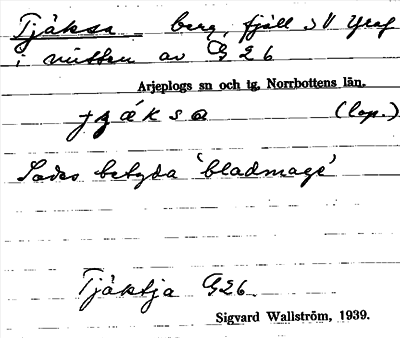 Tjåksa berg, fjäll
i mitten av G 26
Arjeplogs sn och tg, Norrbottens län.
(lap.)
Sades betyda 'bladmage'
Tjåktja G26.
Sigvard Wallström, 1939.